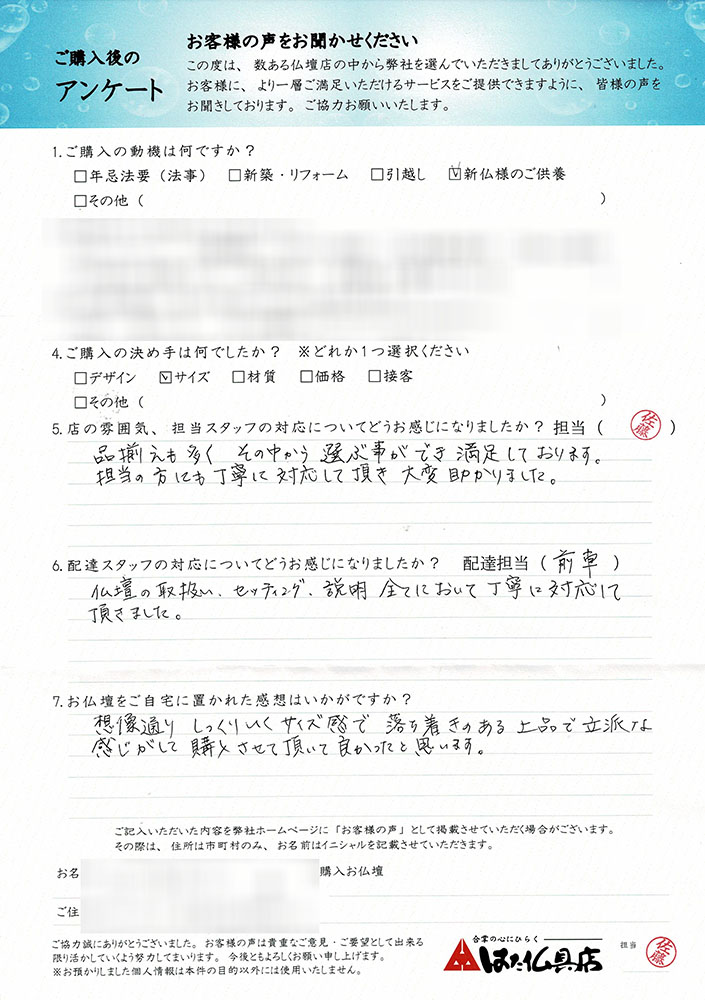 ご購入後の
アンケート
お客様の声をお聞かせください
この度は、数ある仏壇店の中から弊社を選んでいただきましてありがとうございました。
お客様に、より一層ご満足いただけるサービスをご提供できますように、皆様の声を
お聞きしております。ご協力お願いいたします。
1.ご購入の動機は何ですか？
□年忌法要（法事） □新築・リフォーム □引越し ☑新仏様のご供養
□その他（ ）
4.ご購入の決め手は何でしたか？ ※どれか1つ選択ください
□デザイン ☑サイズ □材質 □価格 □接客
□その他（ ）
5.店の雰囲気、担当スタッフの対応についてどうお感じになりましたか？担当（ 佐藤 ）
品揃えも多く その中から 選ぶ事ができ 満足しております。
担当の方にも丁寧に対応して頂き 大変助かりました。
6.配達スタッフの対応についてどうお感じになりましたか？ 配達担当（ 前車 ）
仏壇の取扱い、セッティング、説明 全てにおいて丁寧に対応して
頂きました。
7.お仏壇をご自宅に置かれた感想はいかがですか？
想像通り しっくりいくサイズ感で 落ち着きのある 上品で立派な
感じがして 購入させて頂いて良かったと思います。
ご記入いただいた内容を弊社ホームページに「お客様の声」として掲載させていただく場合がございます。
その際は、住所は市町村のみ、お名前はイニシャルを記載させていただきます。
お名 購入お仏壇
ご住
ご協力誠にありがとうございました。お客様の声は貴重なご意見・ご要望として出来る
限り活かしていくよう努力してまいります。今後ともよろしくお願い申し上げます。
※お預かりしました個人情報は本件の目的以外には使用いたしません。
合掌の心にひらく
はた仏具店
担当 佐藤